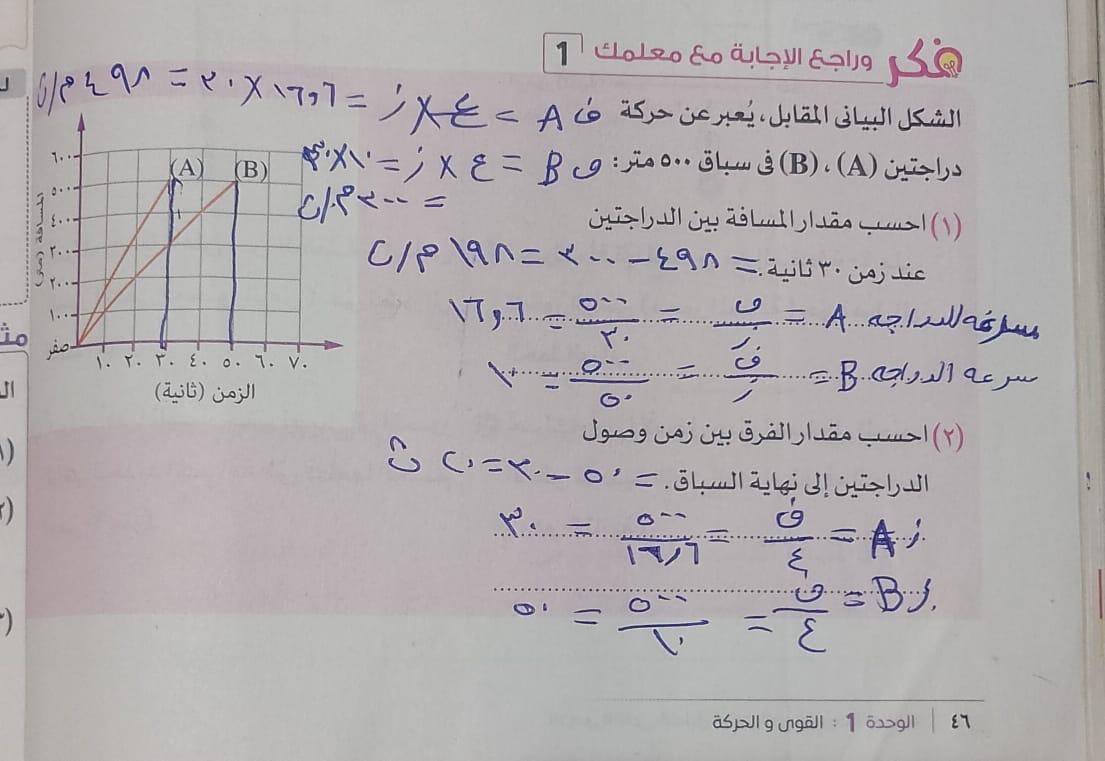 فكر وراجع الإجابة مع معلمك 1
ف A = ع × ز = ١٦,٦ × ٣٠ = ٤٩٨ م/ث
الشكل البيانى المقابل، يُعبر عن حركة
دراجتين (A)، (B) فى سباق ٥٠٠ متر:
ف B = ع × ز = ١٠ × ٣٠
= ٣٠٠ م/ث
(١) احسب مقدار المسافة بين الدراجتين
عند زمن ٣٠ ثانية. = ٤٩٨ - ٣٠٠ = ١٩٨ م/ث
سرعة الدراجه A = ف/ز = ٥٠٠/٣٠ = ١٦,٦
سرعة الدراجه B = ف/ز = ٥٠٠/٥٠ = ١٠
(٢) احسب مقدار الفرق بين زمن وصول
الدراجتين إلى نهاية السباق. = ٥٠ - ٣٠ = ٢٠ ث
ز A = ف/ع = ٥٠٠/١٦,٦ = ٣٠
ز B = ف/ع = ٥٠٠/١٠ = ٥٠
(A) (B)
٦٠٠
٥٠٠
٤٠٠
٣٠٠
٢٠٠
١٠٠
صفر
١٠ ٢٠ ٣٠ ٤٠ ٥٠ ٦٠ ٧٠
الزمن (ثانية)
٤٦ | الوحدة 1 : القوى و الحركة